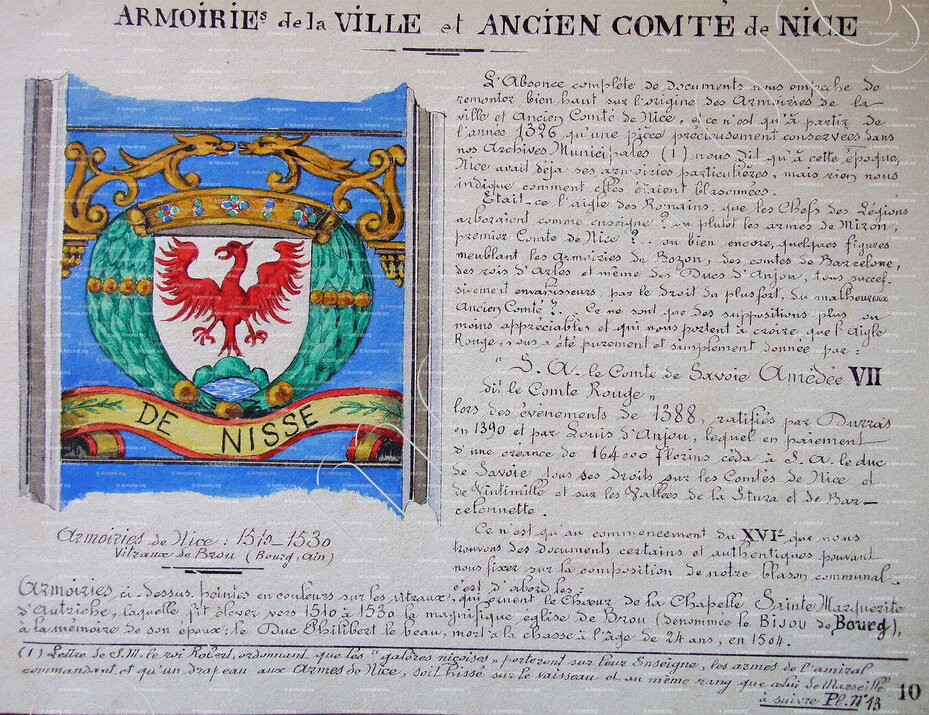 ARMOIRIEs de la VILLE et ANCIEN COMTÉ de NICE
L'Absence complète de documents nous empeche de
remonter bien haut sur l'origine des Armoiries de la
ville et Ancien Comté de Nice, et ce n'est qu'à partir de
l'année 1326 qu'une pièce précieusement conservées dans
nos Archives Municipales (1) nous dit qu'à cette époque,
Nice avait déja ses armoiries particulières, mais rien nous
indique comment elles étaient blasonnées.
Etait-ce l'aigle des Romains, que les Chefs des Légions
arboraient comme enseigne ? ou plutôt les armes de Miron,
premier Comte de Nice ? .. ou bien encore, quelques figures
meublant les armoiries de Bozon, des comtes de Barcelone,
des rois d'Arles et même des Ducs d'Anjou, tous succes-
sivement envahisseurs, par le droit du plus fort, du malheureux
Ancien Comté ? .. Ce ne sont que des suppositions plus ou
moins appreciables et qui nous portent à croire, que l'Aigle
Rouge, nous a été purement et simplement donnée par :
" S. A. le Comte de Savoie Amédée VII
dit le Comte Rouge "
lors des évènements de 1388, ratifiés par Durras
en 1390 et par Louis d'Anjou, lequel en paiement
d'une créance de 164000 florins céda à S. A. le duc
de Savoie tous ses droits sur les Comtés de Nice et
de Vintimille et sur les Vallées de la Stura et de Bar-
celonnette.
Ce n'est qu'au commencement du XVIe que nous
trouvons des documents certains et authentiques pouvant
nous fixer sur la composition de notre blason communal.
c'est d'abord les :
DE NISSE
Armoiries de Nice : 1510_1530
Vitraux de Brou (Bourg, Ain)
Armoiries ci-dessus, peintes en couleurs sur les vitraux, qui ornent le Chœur de la Chapelle Sainte Marguerite
d'Autriche, laquelle fit élever vers 1510 à 1530 la magnifique eglise de Brou (denommée le Bijou de Bourg),
à la mémoire de son époux : le Duc Philibert le beau, mort à la chasse à l'âge de 24 ans, en 1504.
(1) Lettre de S.M. le roi Robert, ordonnant que les "galères niçoises" porteront sur leur Enseigne, les armes de l'amiral
commandant et qu'un drapeau aux Armes de Nice, soit hissé sur le vaisseau et au même rang que celui de Marseille
à suivre Pl. N° 13
10
© Armorial.org